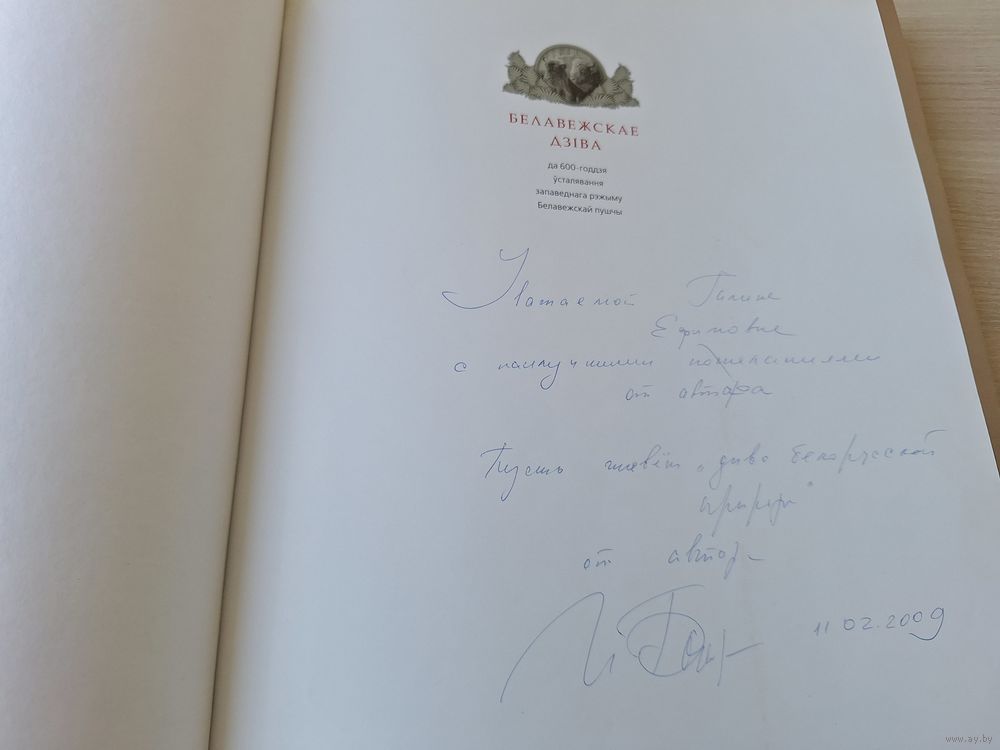 БЕЛАВЕЖСКАЕ
ДЗІВА
да 600-годдзя
ўсталявання
запаведнага рэжыму
Белавежскай пушчы
Уважаемой Галине
Ефимовне
с наилучшими пожеланиями
от автора
Пусть живёт „диво белорусской
природы"
от автора
11 02.2009
www.ay.by